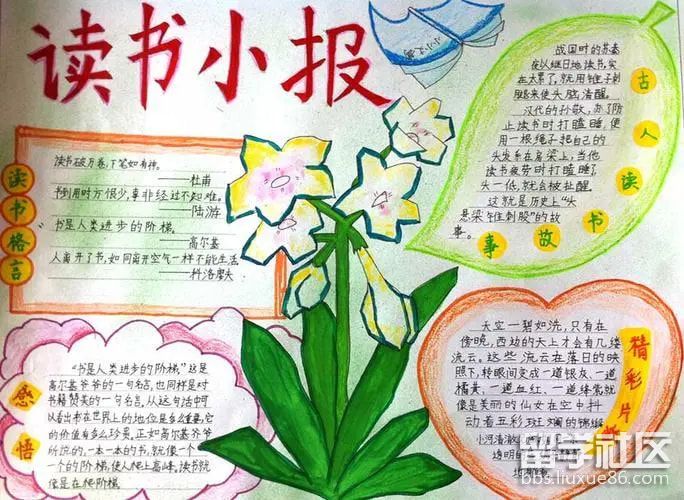 读书小报
读书格言
读书破万卷,下笔如有神。
——杜甫
书到用时方恨少,事非经过不知难。
——陆游
"书是人类进步的阶梯。
——高尔基
人离开了书,如同离开空气一样不能生活
——科洛廖夫
战国时的苏秦
夜以继日地读书,实
在太累了,就用锥子刺
腿来使头脑清醒。
汉代的孙敬,为了防
止读书时打瞌睡,便
用一根绳子把自己的
头发系在房梁上,当他
读书疲劳时打瞌睡了
头一低,就会被扯醒。
这就是历史上"头
悬梁锥刺股"的故
事。
古人读书故事
感悟
"书是人类进步的阶梯。"这是
高尔基爷爷的一句名言,也同样是对
书籍赞美的一句名言,从这句话中可
以看出书在世界上的地位是多么重要,它
的价值有多么珍贵,正如高尔基爷爷
所说的,一本一本的书,就像一个一
个的阶梯,使人爬上高峰,读书就
像是在爬阶梯。
精彩片
天空一碧如洗,只有在
傍晚,西边的天上才会有几缕
流云。这些流云在落日的映
照下,转眼间变成一道银灰、一道
橘黄、一道血红、一道绛紫,就
像是美丽的仙女在空中抖
动着五彩斑斓的锦缎
小河清澈
透明
留学社区
bbs.liuxue86.com